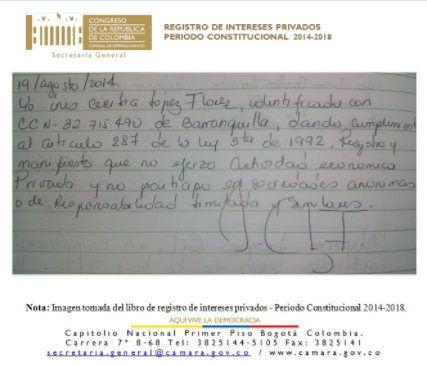 CONGRESO
DE LA REPÚBLICA
DE COLOMBIA
CÁMARA DE REPRESENTANTES
Secretaría General
REGISTRO DE INTERESES PRIVADOS
PERIODO CONSTITUCIONAL 2014-2018
19/agosto/2014.
Yo Ines Cecilia Lopez Florez, identificada con
CC N- 32.715.490 de Barranquilla, dando cumplimiento
al articulo 287 de la ley 5ta de 1992, Registro y
manifiesto que no ejerzo Actividad economica
Privada y no participo en sociedades anonimas
o de Responsabilidad limitada y similares.
Nota: Imagen tomada del libro de registro de intereses privados - Periodo Constitucional 2014-2018.
AQUÍVIVE LA DEMOCRACIA
Capitolio Nacional Primer Piso Bogotá Colombia.
Carrera 7ª 8-68 Tel: 3825144-5105 Fax: 3825141
secretaria.general@camara.gov.co / www.camara.gov.co